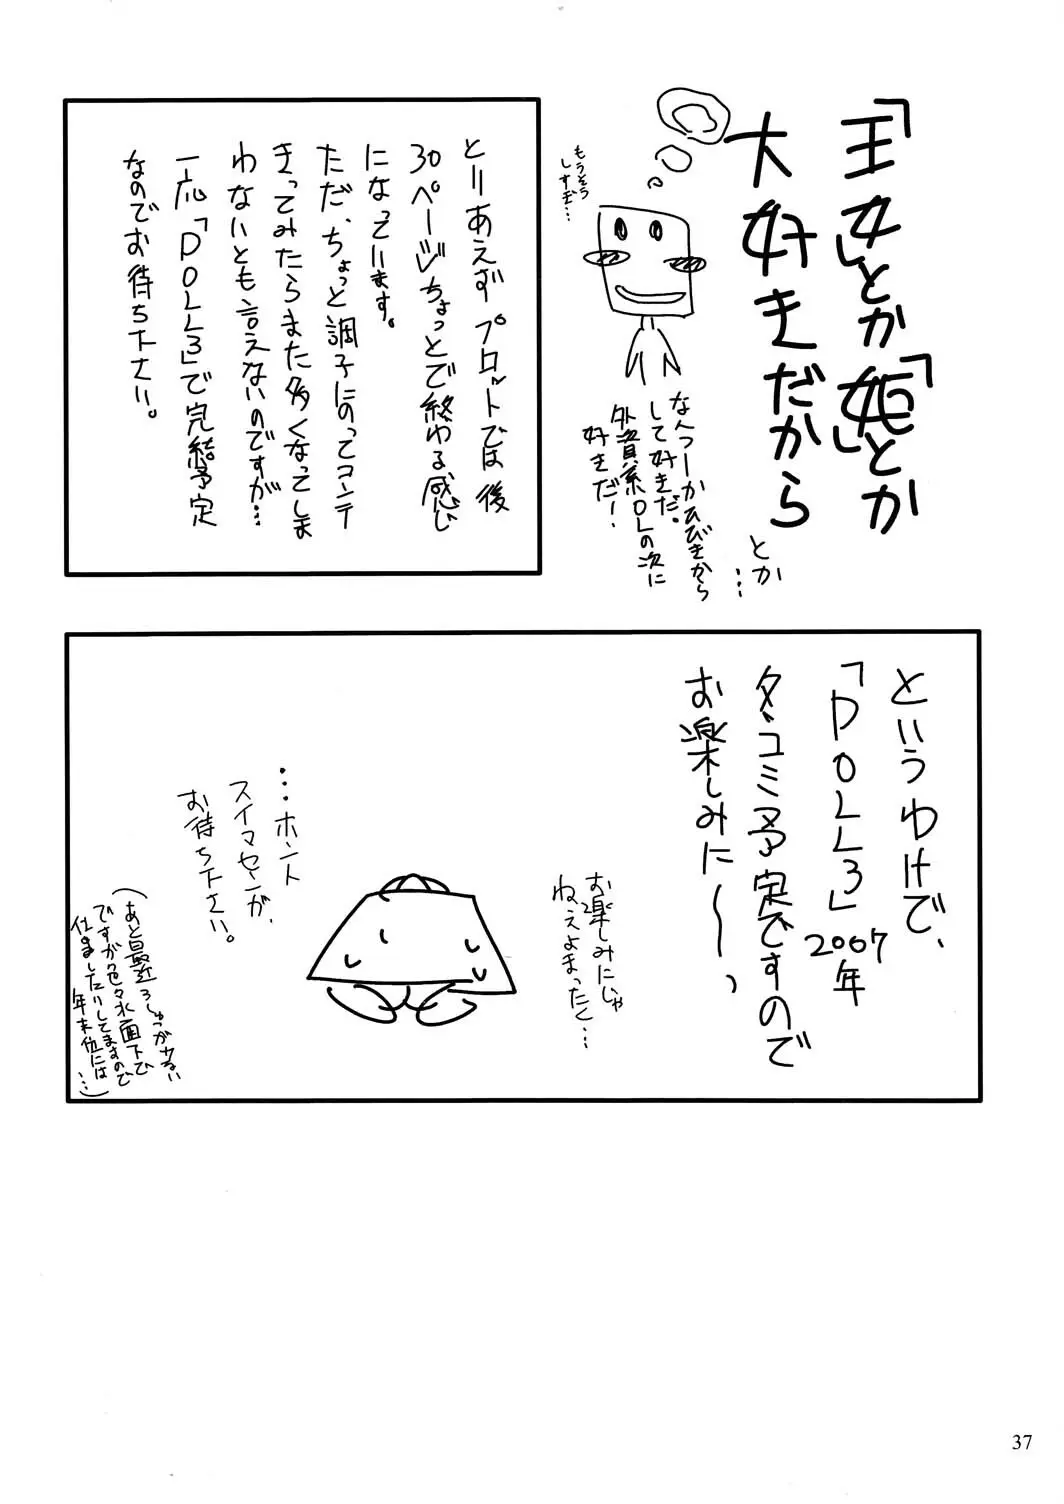 「王女」とか「姫」とか
大好きだから
とか…
もうそう
しすぎ…
なんつーかひびきから
して好きだ。
外資系OLの次に
好きだー！
とりあえずプロットでは後
30ページちょっとで終わる感じ
になっています。
ただ、ちょっと調子にのってコンテ
きってみたらまた多くなってしま
わないとも言えないのですが…
一応「DOLL3」で完結予定
なのでお待ち下さい。
というわけで、
「DOLL3」2007年
冬コミ予定ですので
お楽しみに～っ
お楽しみにじゃ
ねぇよまったく…
…ホント
スイマセンが、
お待ち下さい。
(あと最近ろしゅつが少ない
ですが色々水面下で
仕こましたりしてますので
年末位には
…)
37